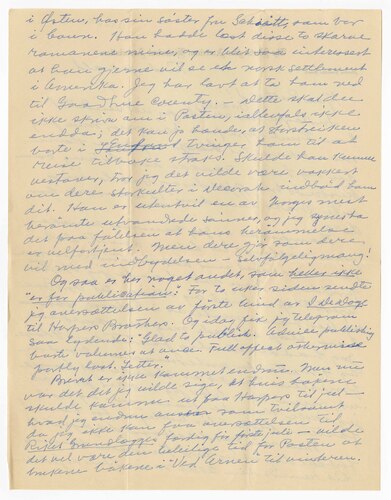 i Østen, hos sin søster fru Schøtt, som bor
i byen. Han hadde lest disse to
romanene mine, og er blit saa interessert
at han gjerne vil se et norsk settlement
i Amerika. Jeg har lovt at ta ham ned
til Goodhue County. – Dette skal du
ikke skrive om i Posten, iallefals ikke
endda; det kan jo hænde, at
borte i tvinger ham til at
reise tilbake straks. Skulde han komme
vestover, tror jeg det vilde være vakkert
om dere i Decorah indbød ham
dit. Han er utentvil en av Norges mest
berømte utvandrede sønner, og jeg
det paa følelsen at hans berømmelse
er velfortjent. Men dere gjør som dere
vil med indbydelsen – selvfølgelig!
Og saa er her noget andet, som heller ikke
"er for publication": For to uker siden sendte
jeg oversættelsen av første bind av I de Dage
til Harpers Brothers. Og idag fik jeg telegram
saa lydende: "Glad to publish. Advise publishing
both volumes at once. Full effect otherwise
partly lost. Letter."
Brevet er ikke kommet endnu. Men nu
var det det jeg vilde sige, at hvis bøkene
skulde komme ut paa Harpers til jul –
hvad jeg endnu som tvilsomt
da jeg ikke kan faa oversættelsen til
Riket Grundlægges færdig før første juli – vilde
det vel være den beleilige tid for Posten at
trykke bøkene i "Ved Arnen" til vinteren.